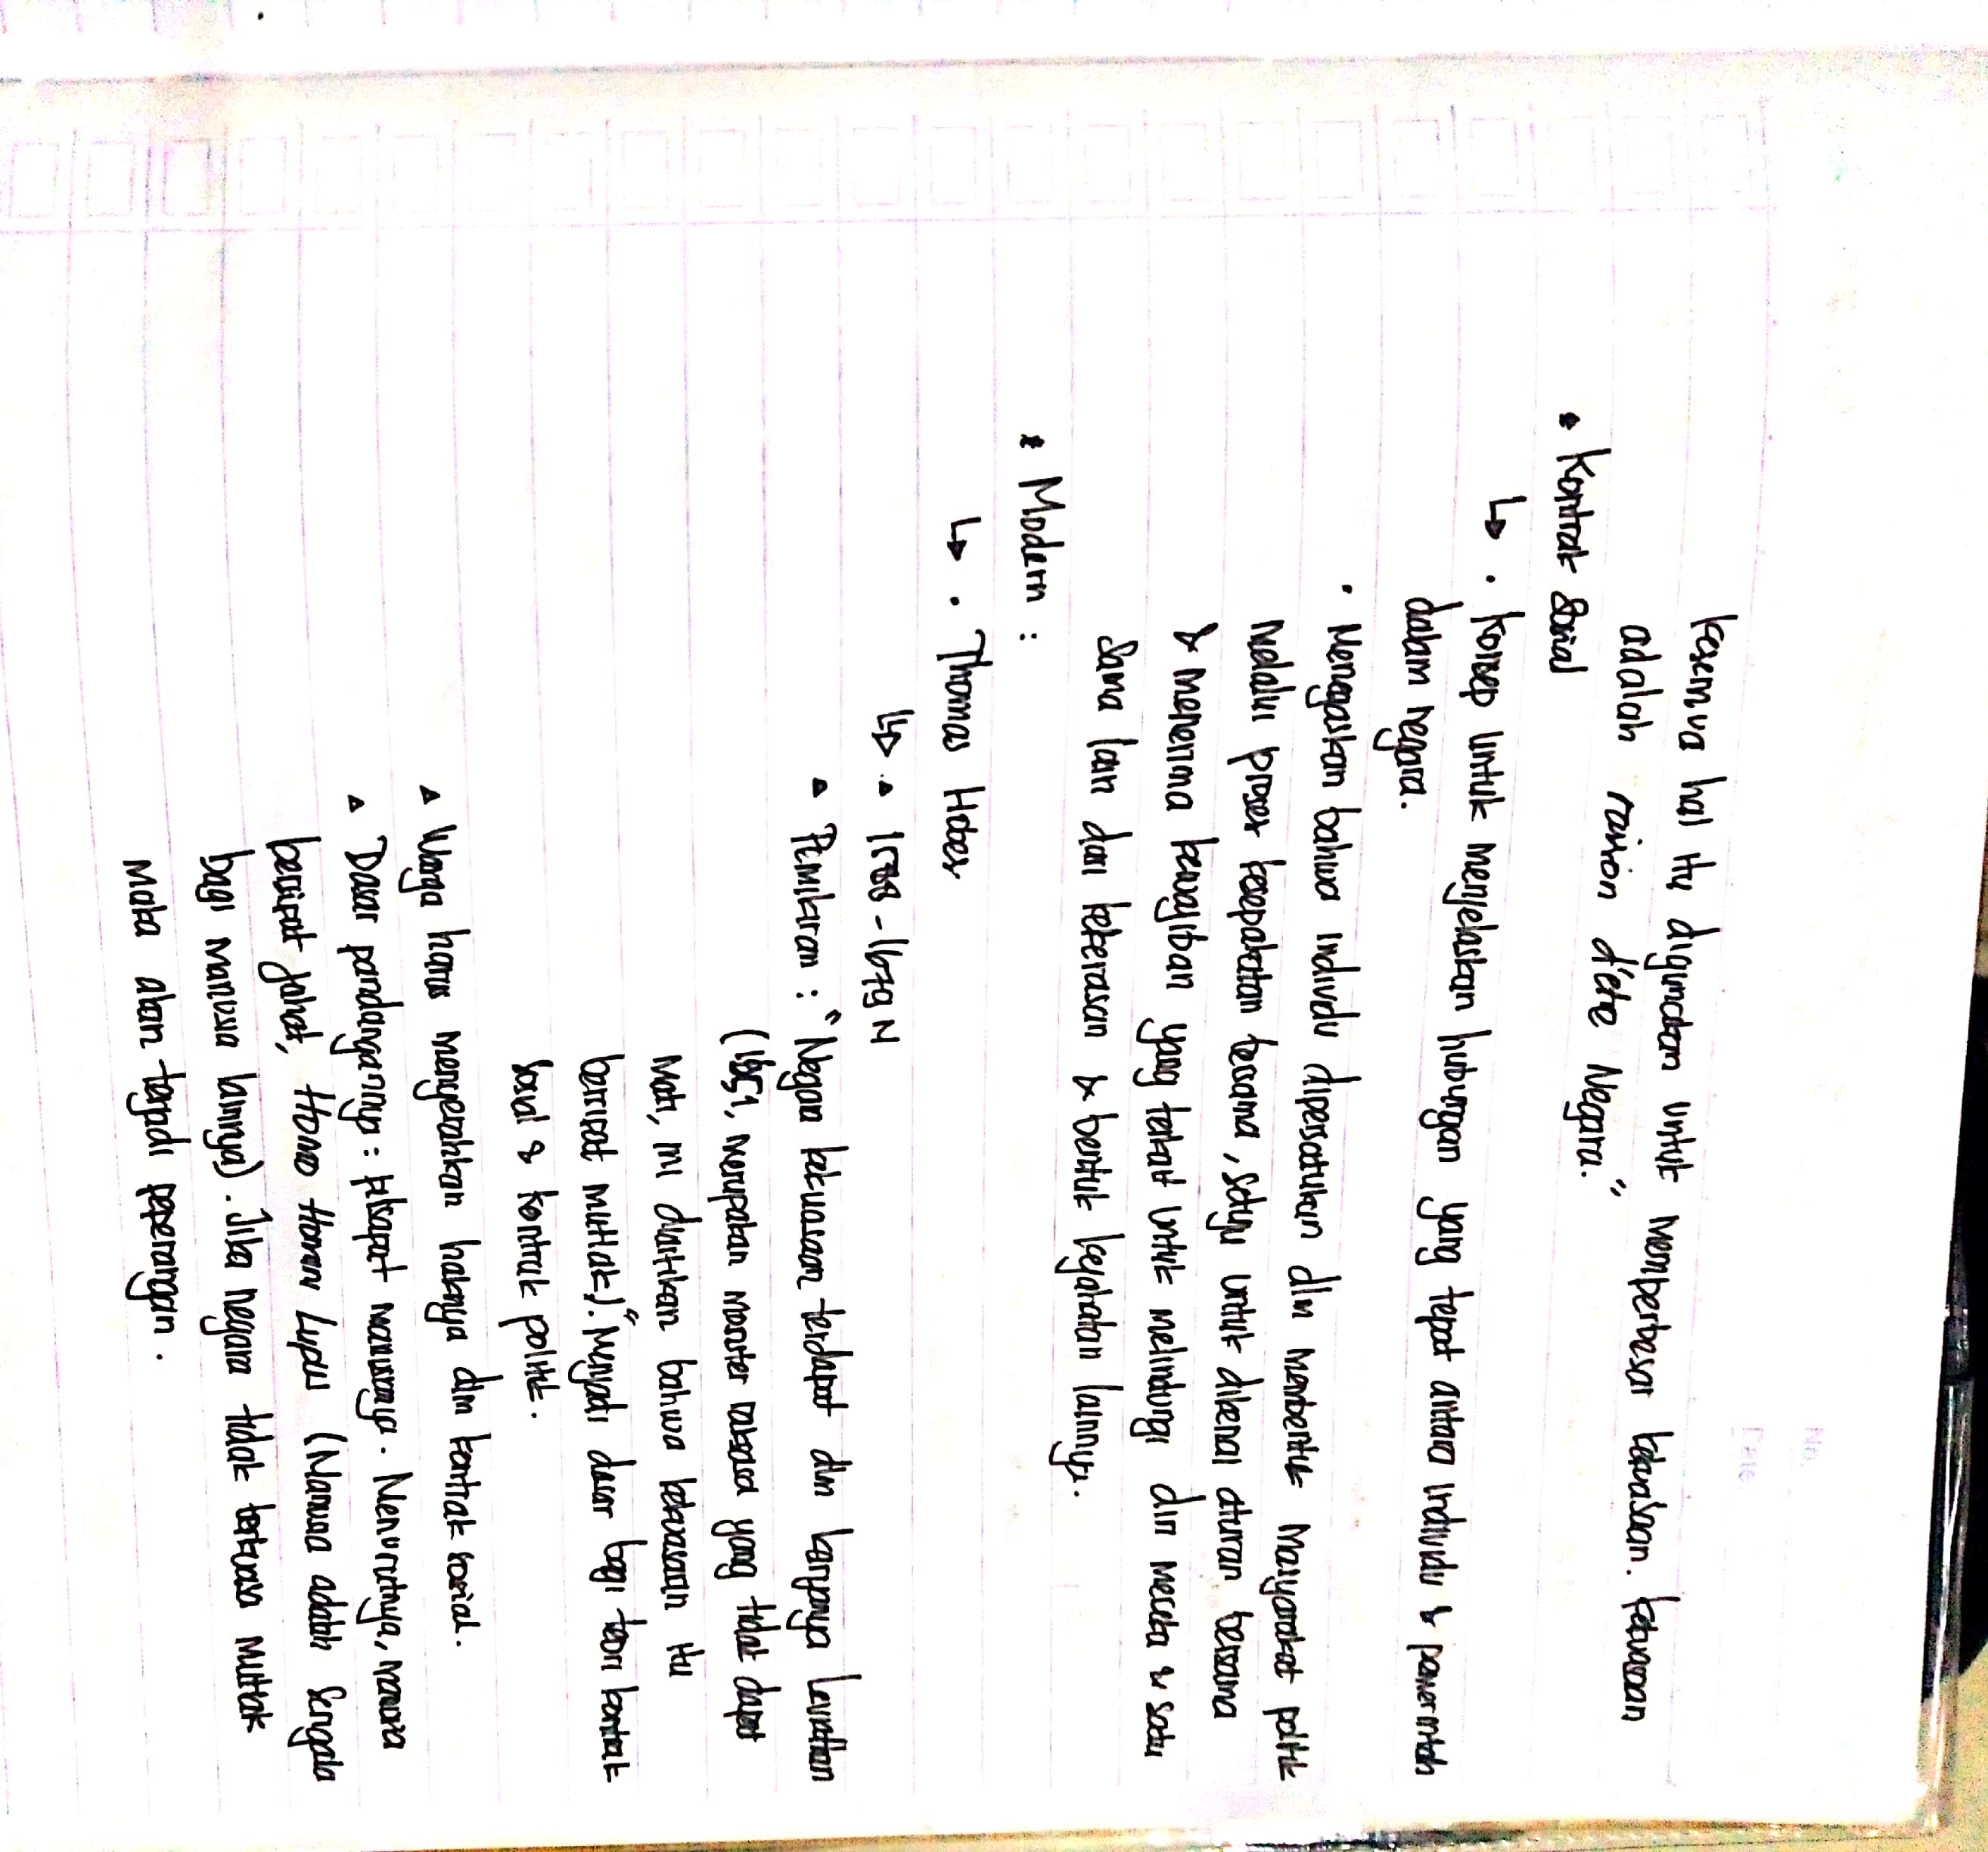 kesemua hal itu digunakan untuk memperbesar kekuasaan. kekuasaan
adalah raison d'etre Negara."
• Kontrak sosial
↳ • Konsep untuk menjelaskan hubungan yang tepat antara individu & pemerintah
dalam negara.
• Menegaskan bahwa individu dipersatukan dlm membentuk masyarakat politik
melalui proses kesepakatan bersama, setuju untuk dikenai aturan bersama
& menerima kewajiban yang terkait untuk melindungi diri mereka & satu
sama lain dari kekerasan & bentuk kejahatan lainnya.
* Modern :
↳ • Thomas Hobbes
↳ ▵ 1588 - 1679 M
▵ Pemikiran : "Negara kekuasaan terdapat dlm karyanya Leviathan
(1651, merupakan monster raksasa yang tidak dapat
mati, ini diartikan bahwa kekuasaan itu
bersifat mutlak)." Menjadi dasar bagi teori kontrak
sosial & kontrak politik.
▵ Warga harus menyerahkan haknya dlm kontrak sosial.
▵ Dasar pandangannya : filsafat manusianya. Menurutnya, manusia
bersifat jahat, Homo Homini Lupus (Manusia adalah serigala
bagi manusia lainnya). Jika negara tidak berkuasa mutlak
maka akan terjadi peperangan.
No.
Date